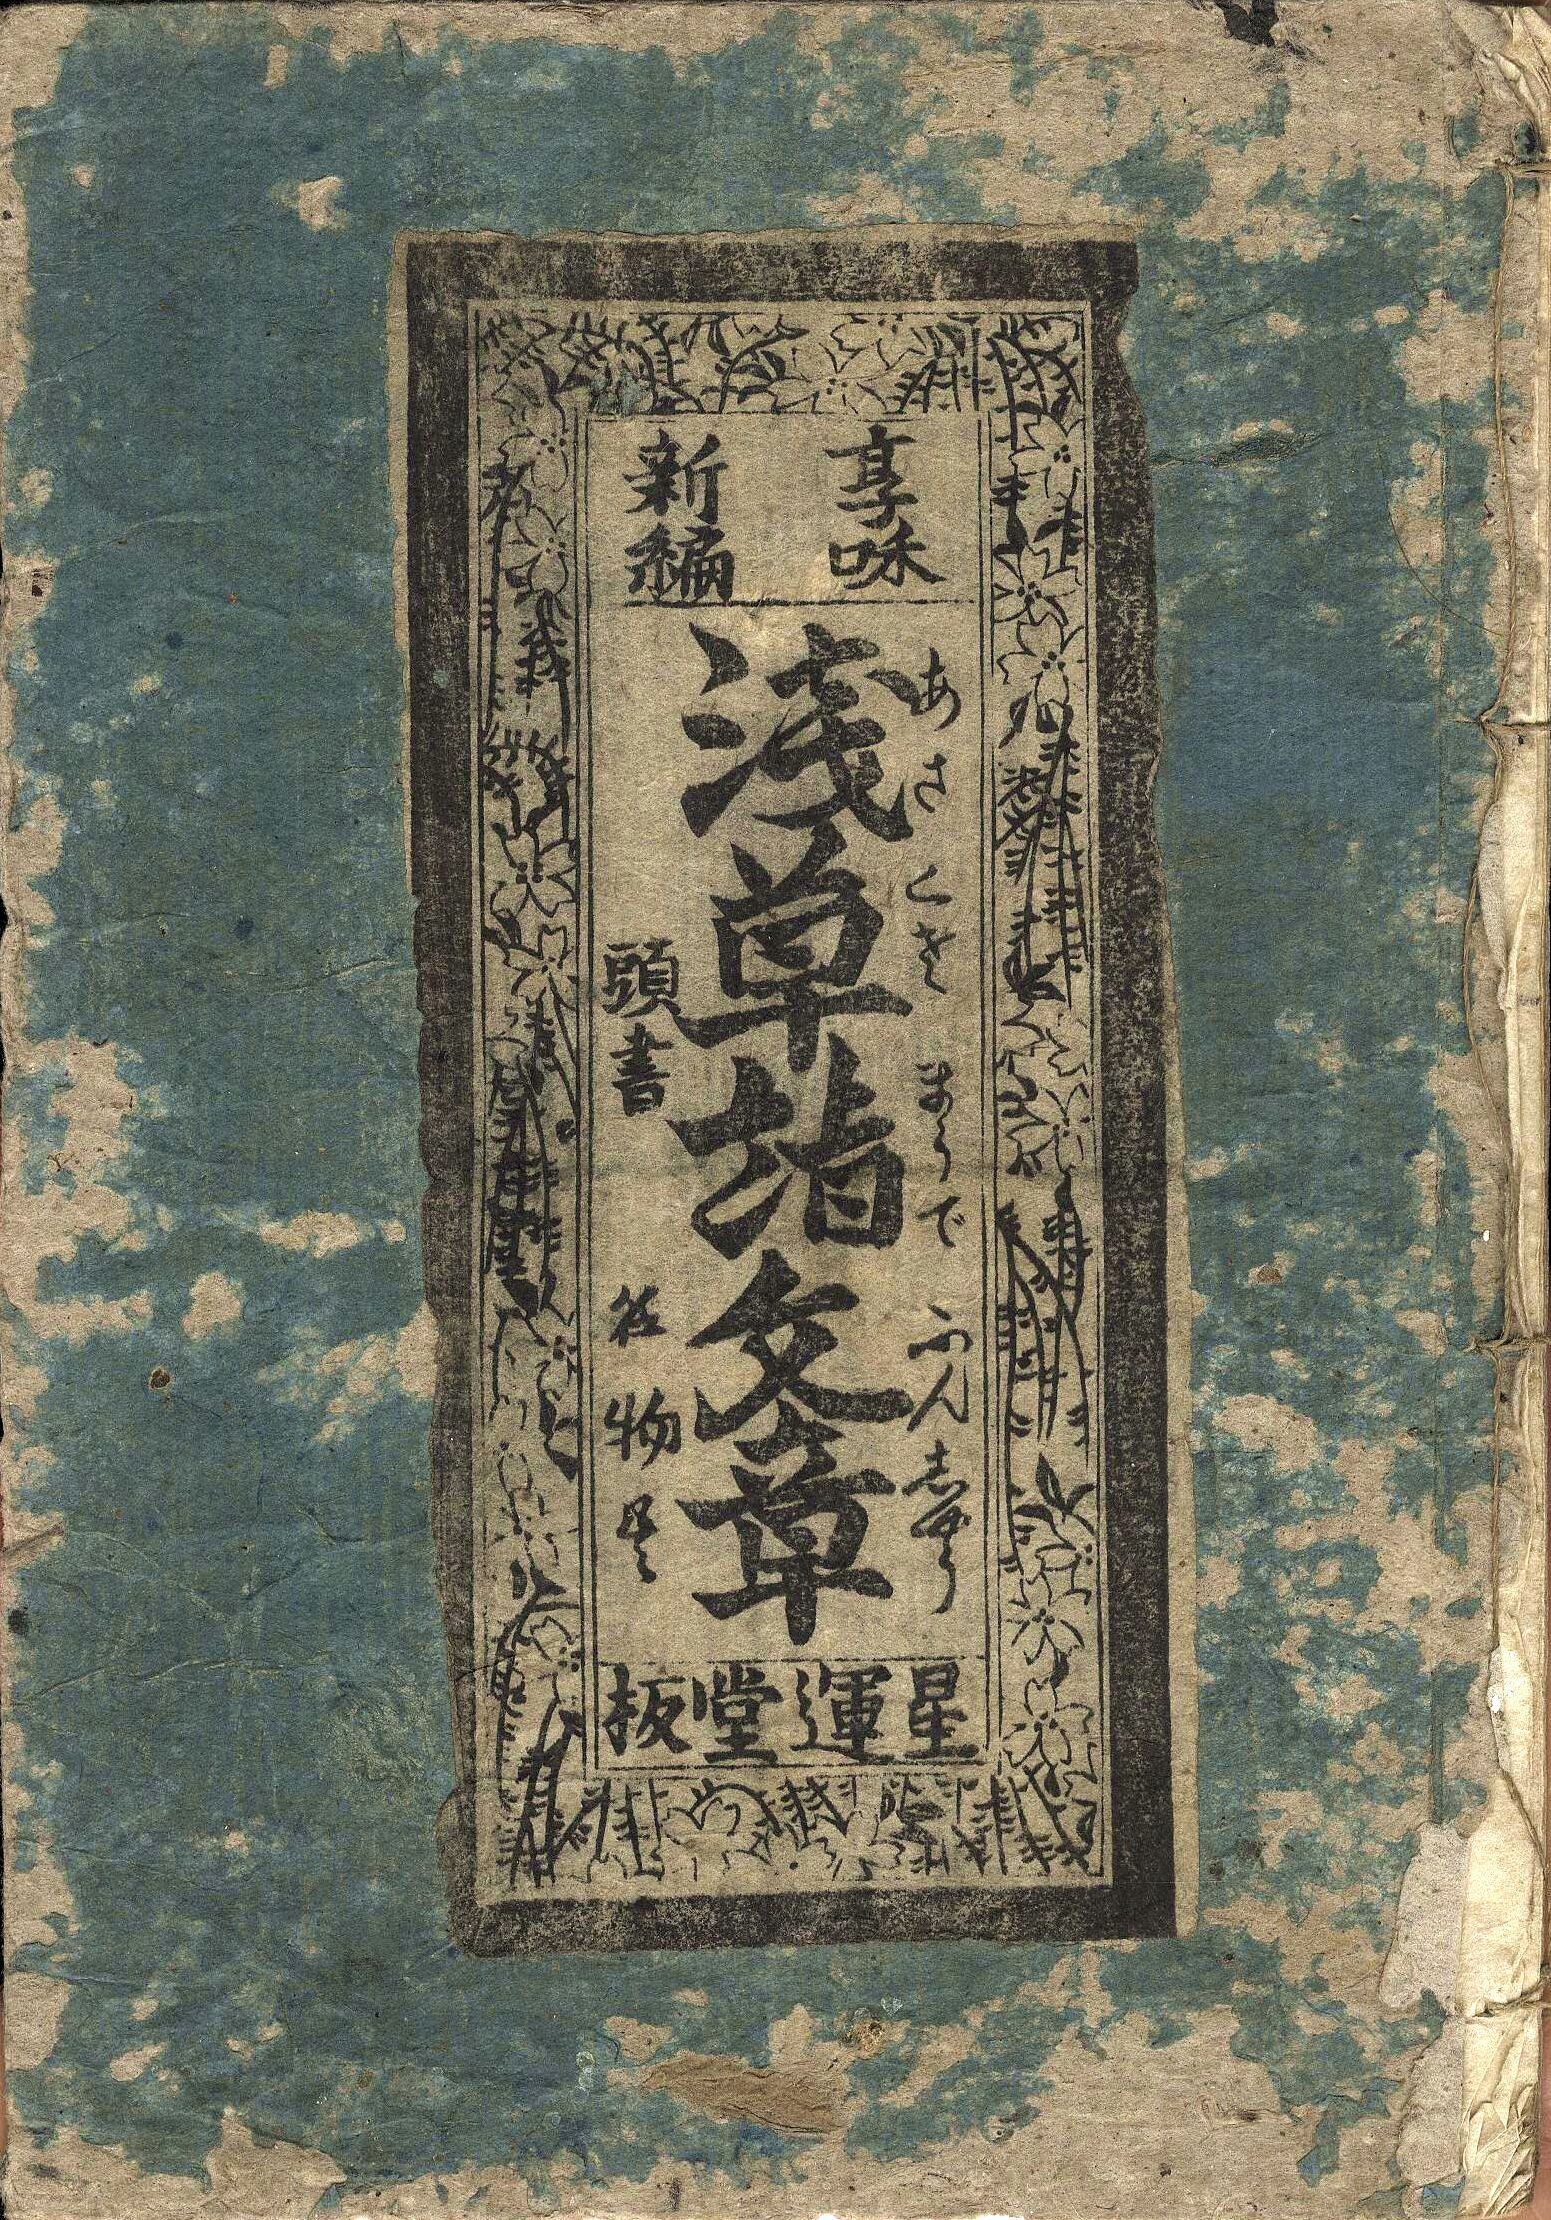 享和
新編
あさくさ まうで ふんしやう
浅草詣文章
頭書
物
星運堂板